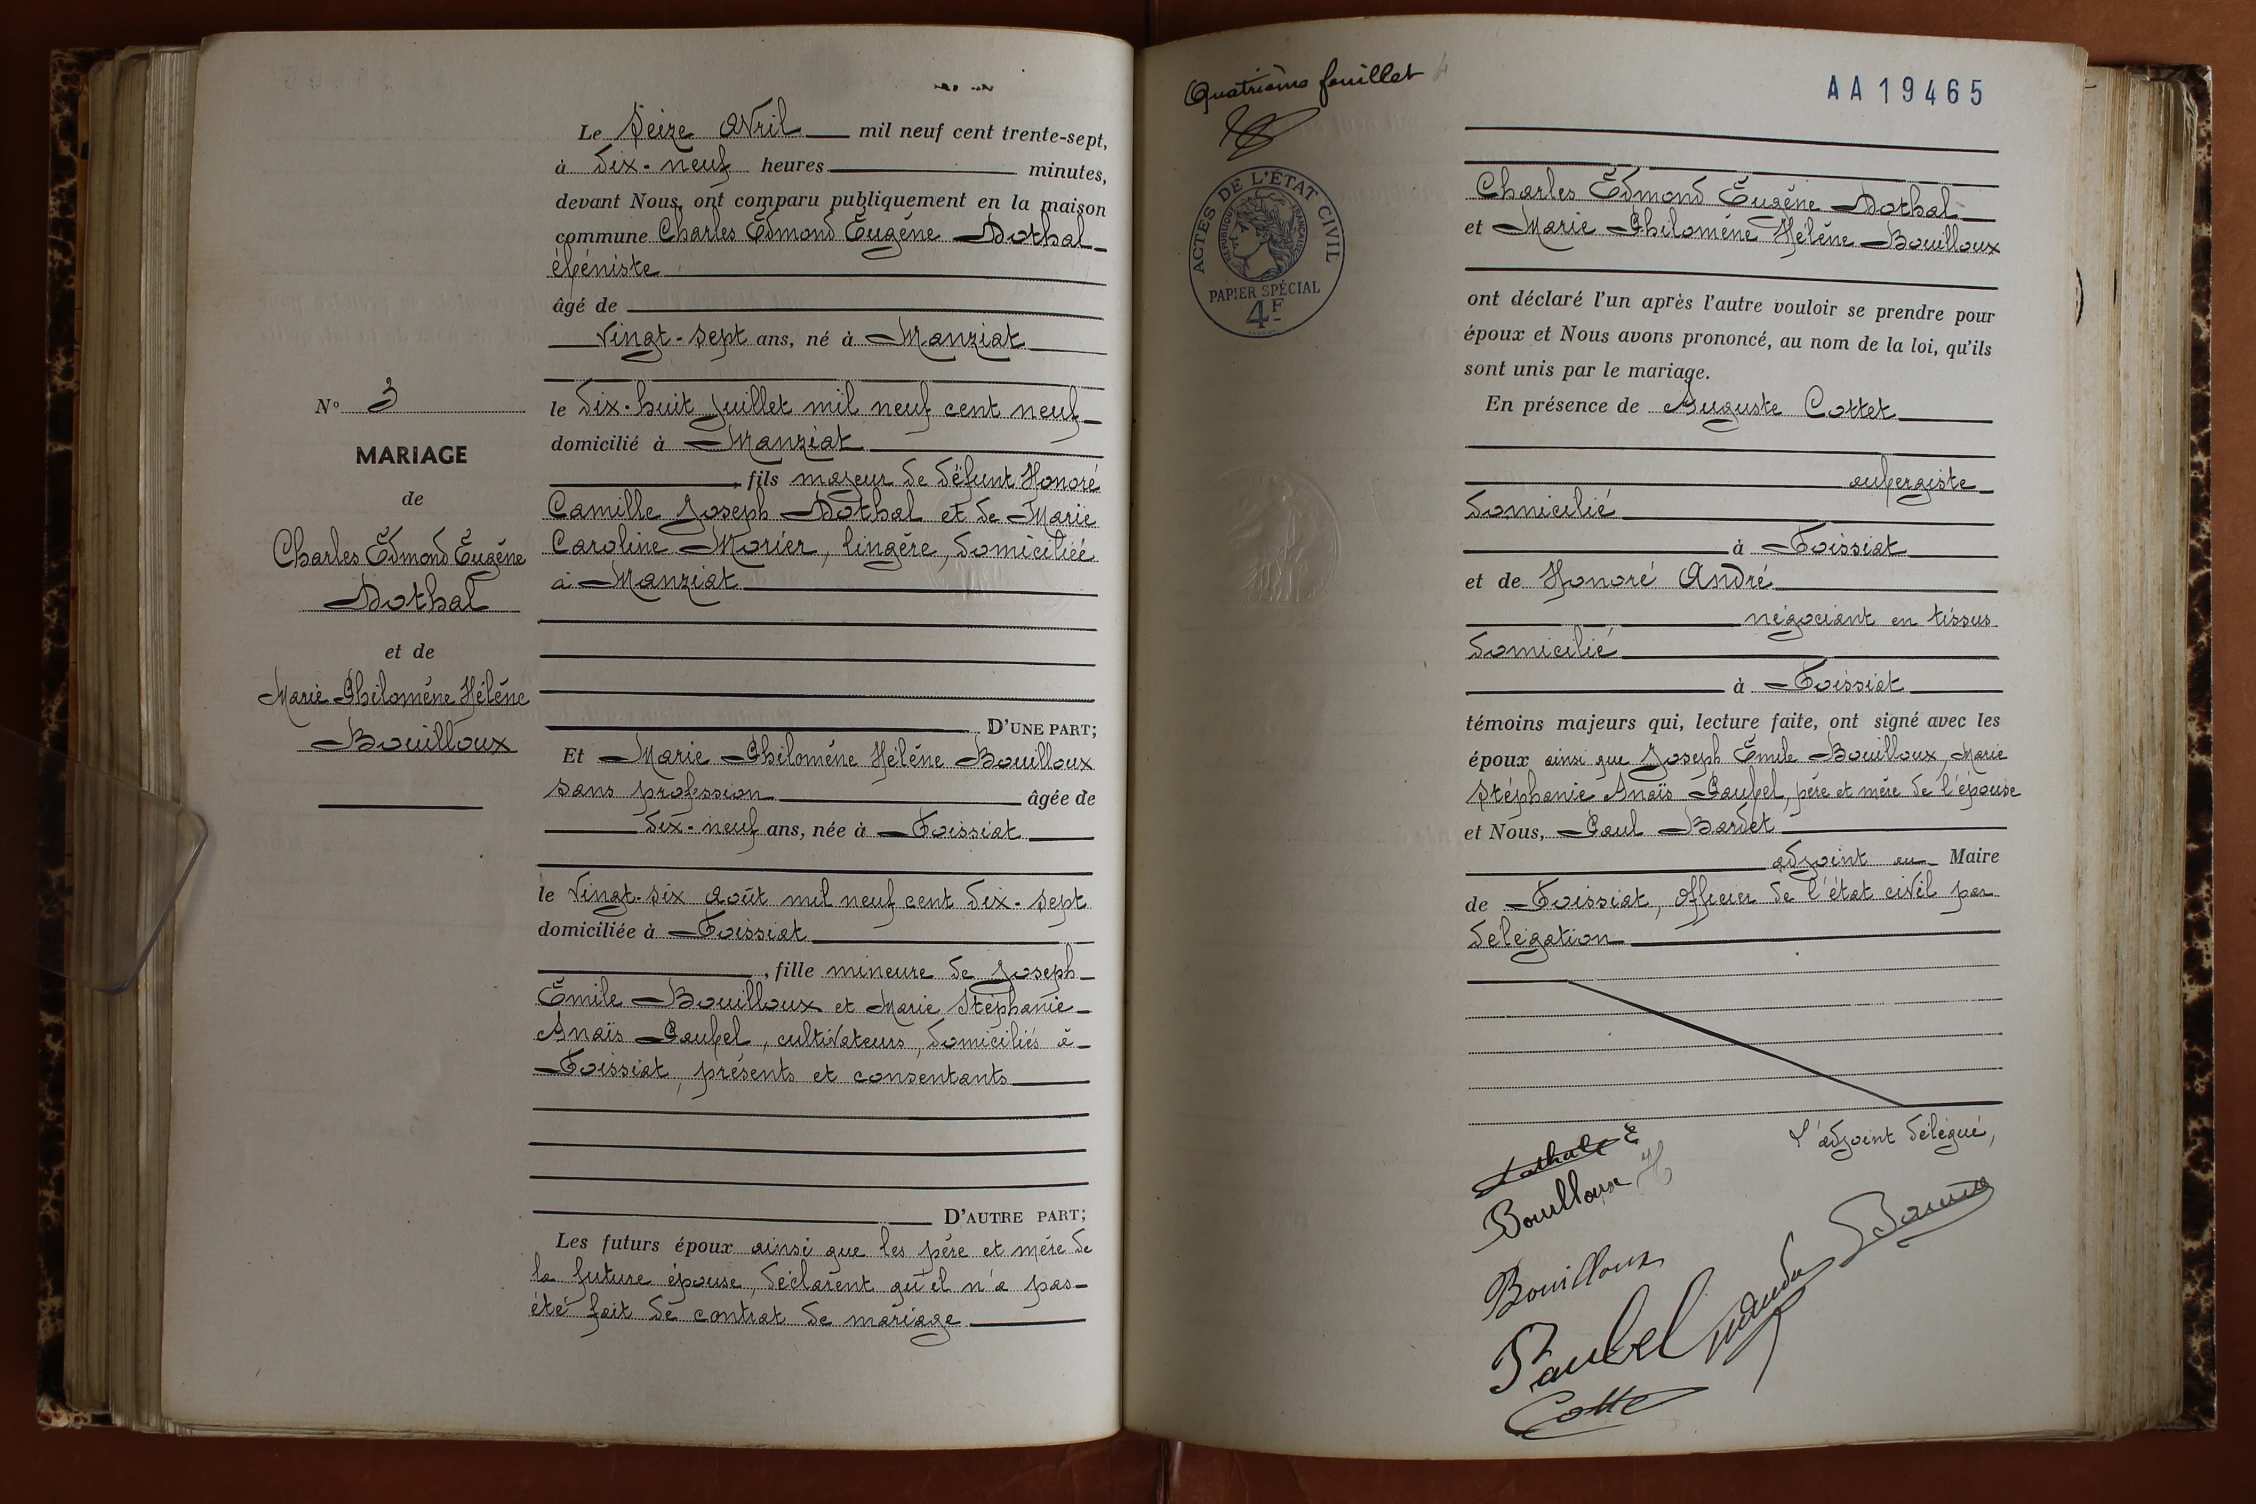 Le Seize Avril mil neuf cent trente-sept,
à dix-neuf heures minutes,
devant Nous, ont comparu publiquement en la maison
commune Charles Edmond Eugène Dothal
ébéniste
âgé de
vingt-sept ans, né à Manziat
le dix-huit juillet mil neuf cent neuf
domicilié à Manziat
, fils majeur de défunt Honoré
Camille Joseph Dothal et de Marie
Caroline Morier, lingère, domiciliée
à Manziat
D'UNE PART;
Et Marie Philomène Hélène Bouilloux
sans profession âgée de
dix-neuf ans, née à Foissiat
le vingt-six août mil neuf cent dix-sept
domiciliée à Foissiat
, fille mineure de Joseph
Emile Bouilloux et Marie Stéphanie
Anaïs Paubel, cultivateurs, domiciliés à
Foissiat, présents et consentants
D'AUTRE PART;
Les futurs époux ainsi que les père et mère de
la future épouse, déclarent qu'il n'a pas
été fait de contrat de mariage
N° 3
MARIAGE
de
Charles Edmond Eugène
Dothal
et de
Marie Philomène Hélène
Bouilloux
Quatrième feuillet
AA19465
ACTES DE L'ÉTAT CIVIL
RÉPUBLIQUE FRANÇAISE
PAPIER SPÉCIAL
4F
Charles Edmond Eugène Dothal
et Marie Philomène Hélène Bouilloux
ont déclaré l'un après l'autre vouloir se prendre pour
époux et Nous avons prononcé, au nom de la loi, qu'ils
sont unis par le mariage.
En présence de Auguste Cottet
aubergiste
domicilié
à Foissiat
et de Honoré André
négociant en tissus
domicilié
à Foissiat
témoins majeurs qui, lecture faite, ont signé avec les
époux ainsi que Joseph Emile Bouilloux, Marie
Stéphanie Anaïs Paubel, père et mère de l'épouse
et Nous, Paul Bardet
adjoint au Maire
de Foissiat, officier de l'état civil par
délégation
L'adjoint délégué,
Dothal E
Bouilloux H
Bouilloux
Paubel